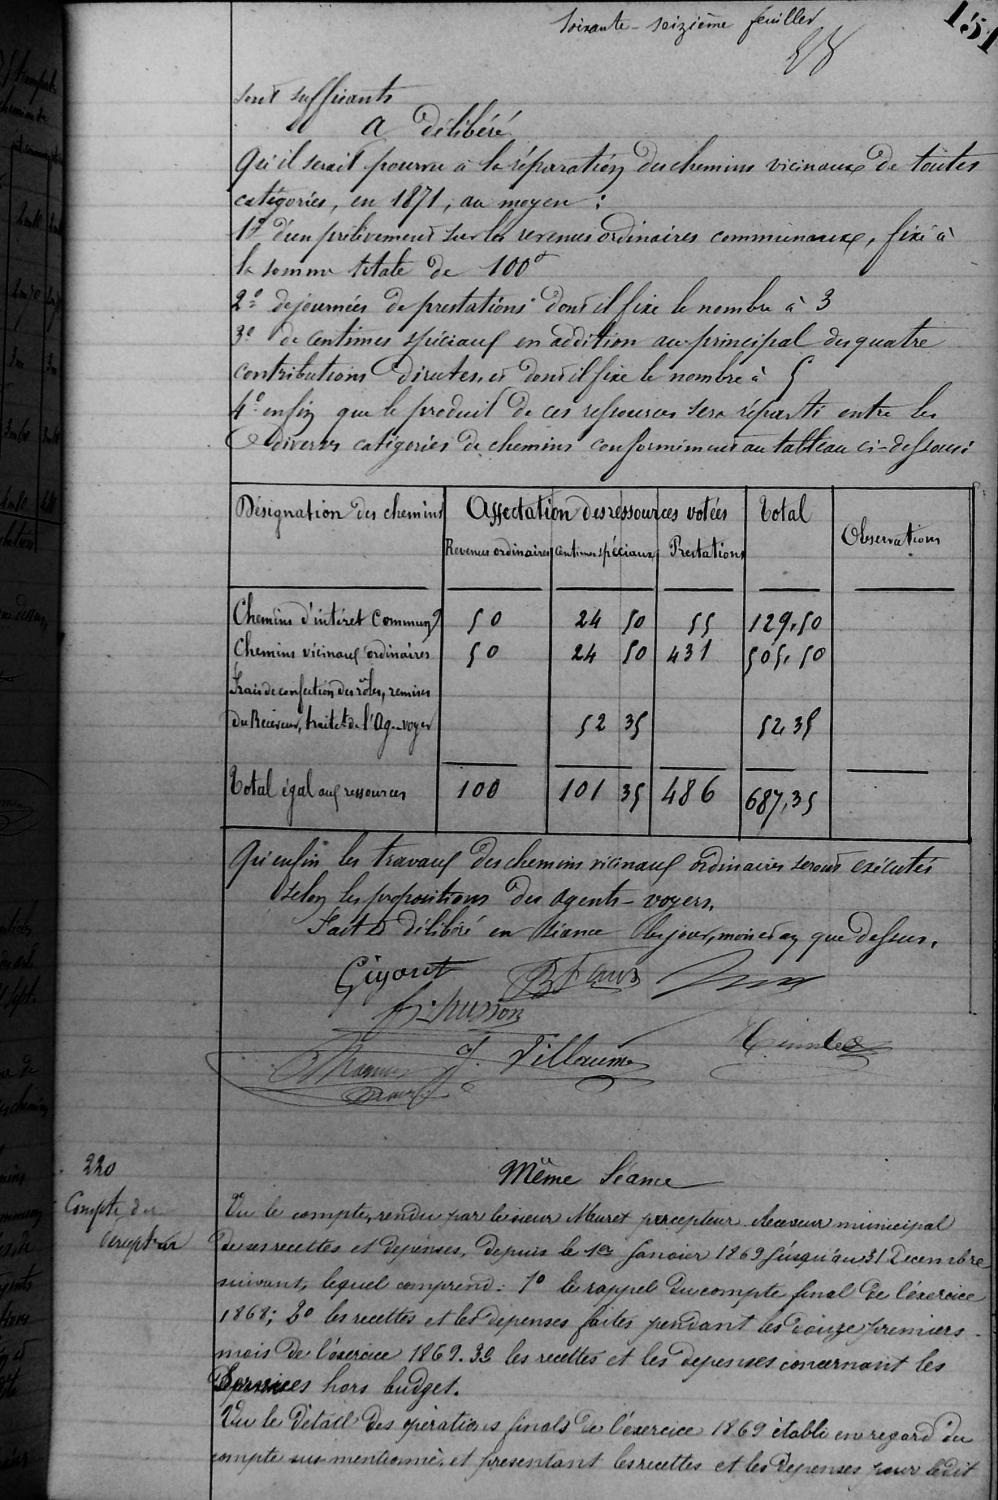 Soixante-seizième feuillet
151
sont suffisants
a délibéré
Qu'il serait pourvu à la réparation des chemins vicinaux de toutes
catégories, en 1871, au moyen :
1º d'un prélèvement sur les revenus ordinaires communaux, fixé à
la somme totale de 100f
2º de journées de prestations dont il fixe le nombre à 3
3º de centimes spéciaux en addition au principal des quatre
contributions directes, et dont il fixe le nombre à 5
4º enfin que le produit de ces ressources sera réparti entre les
diverses catégories de chemins conformément au tableau ci-dessous:
Désignation des chemins Affectation des ressources votées Total Observations
Revenus ordinaires Centimes spéciaux Prestations
Chemins d'intéret Commun 50 24 50 55 129,50
Chemins vicinaux ordinaires 50 24 50 431 505,50
Frais de confection des rôles, remises
du Receveur, traitet de l'Ag.-voyer 52 35 52,35
Total égal aux ressources 100 101 35 486 687,35
Qu'enfin les travaux des chemins vicinaux ordinaires seront exécutés
selon les propositions des agents-voyers.
Fait et délibéré en Séance les jour, mois et an que dessus.
Gigout
h. husson
J. Villaume
220
Compte du
Même Séance
Vu le compte, rendu par le sieur Muret percepteur Receveur municipal
de ses recettes et depenses, depuis le 1er Janvier 1869 jusqu'au 31 Decembre
suivant, lequel comprend: 1º le rappel du compte final de l'exercice
1868; 2º les recettes et les depenses faites pendant les douze premiers
mois de l'exercice 1869. 3º les recettes et les depenses concernant les
Services hors budget.
Vu le détail des opérations finals de l'exercice 1869 établi en regard du
compte sus mentionné, et presentant les recettes et les depenses pour ledit